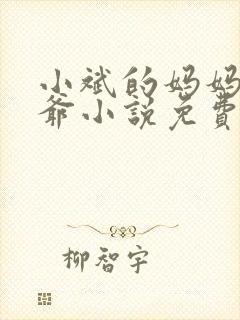 小斌的妈妈
爺小説免費
柳智宇